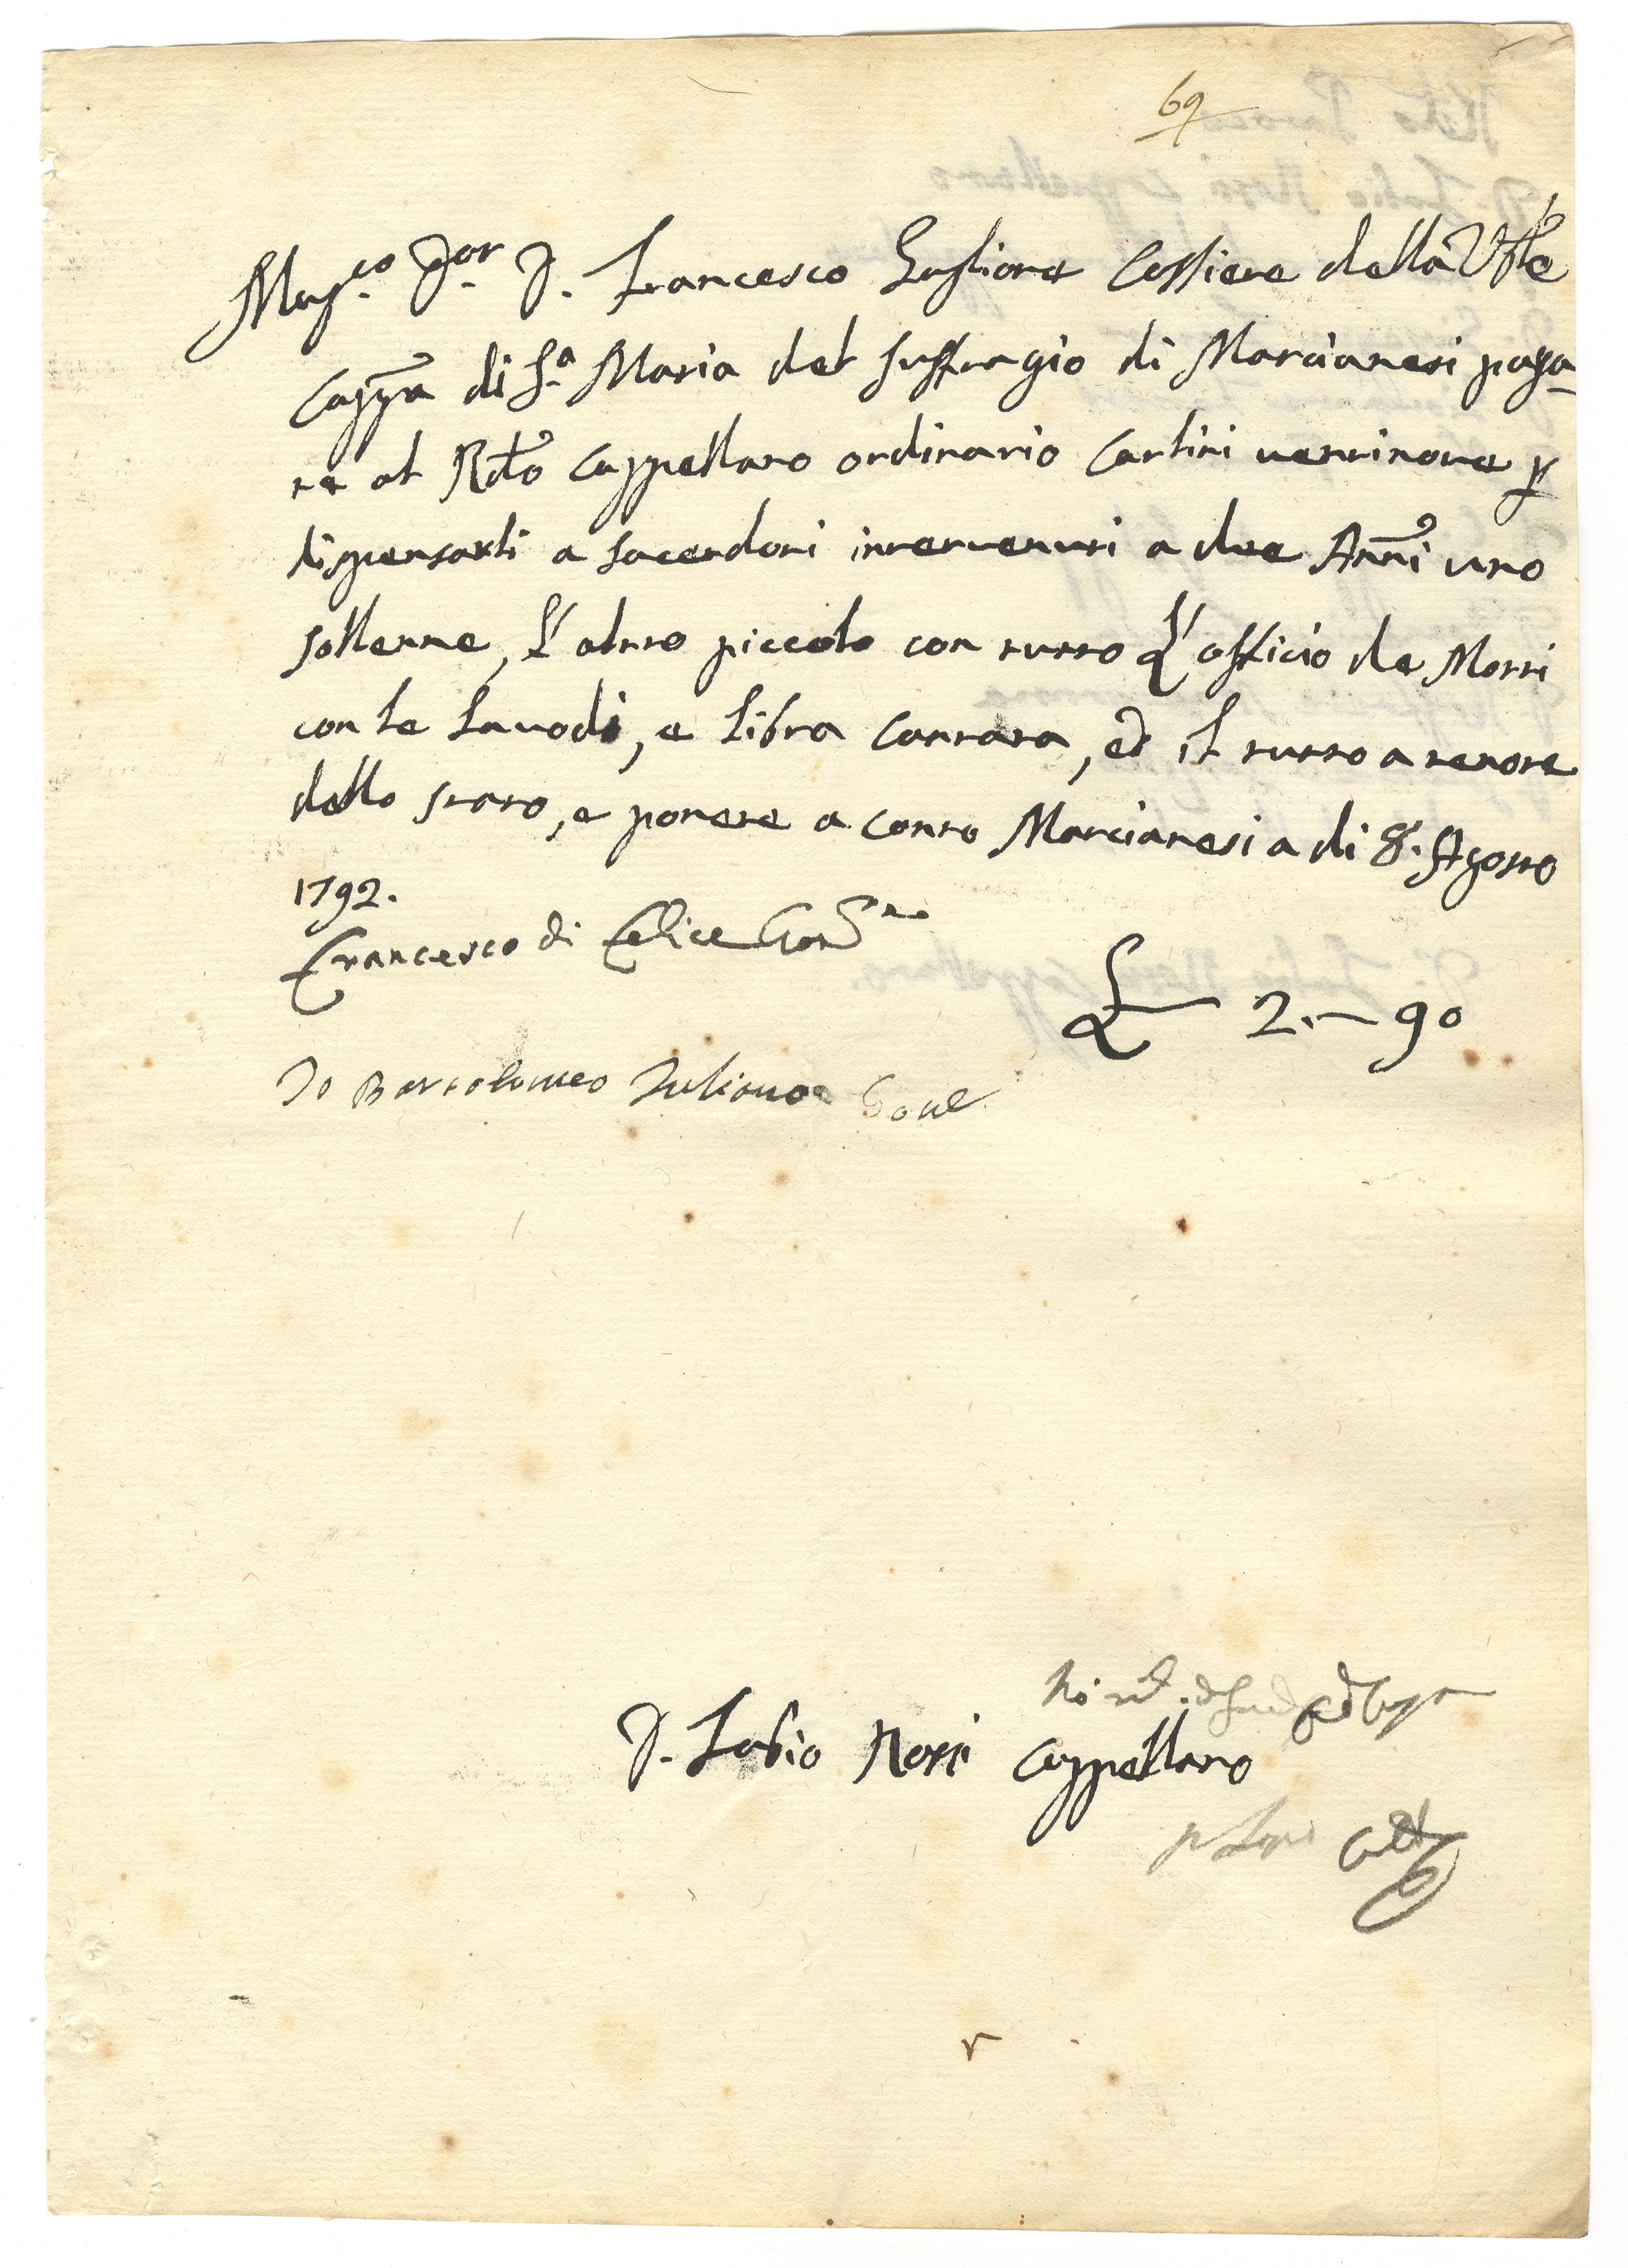 69
Mag.co D.or D. Francesco Gaglione Cassiere della Vble
Cappa di S.a Maria del suffragio di Marcianesi paga-
re al Rdo Cappellano ordinario Carlini ventinove p
dispensarli a sacerdoti intervenuti a due Anni uno
sollenne, l'altro piccolo con tutto l'officio de Morti
con le Laudi, e libra cantata, ed il tutto a tenore
dello stato, e ponere a conto Marcianesi a di 8. Agosto
1792.
Francesco di Felice Gov.re
2.— 90
Io Bartolomeo Iuliano Gove
D. Fabio Rossi Cappellano